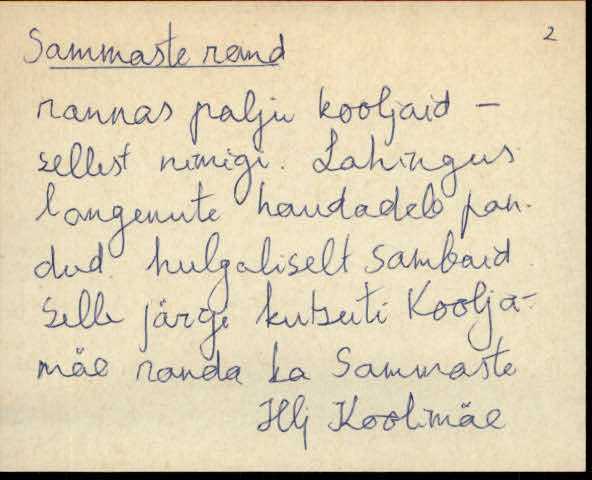 2
Sammaste rand
rannas palju kooljaid –
sellest nimigi. Lahingus
langenute haudadele pan-
dud hulgaliselt sambaid.
Selle järgi kutsuti Koolja-
mäe randa ka Sammaste
Hlj Koolimäe